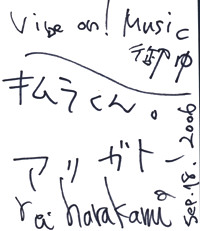 Vibe on! Music
キムラくん。
アッガト
rei harakami
Sep.18.2006